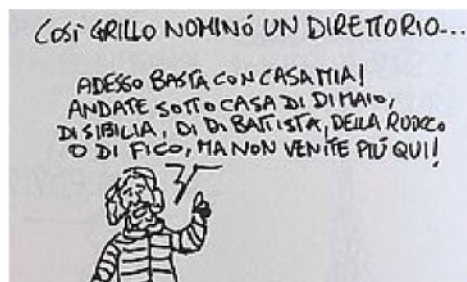 COSÌ GRILLO NOMINÓ UN DIRETTORIO...
ADESSO BASTA CON CASA MIA!
ANDATE SOTTO CASA DI DI MAIO,
DI SIBILIA, DI DI BATTISTA, DELLA RUOCCO
O DI FICO, MA NON VENITE PIÚ QUI!